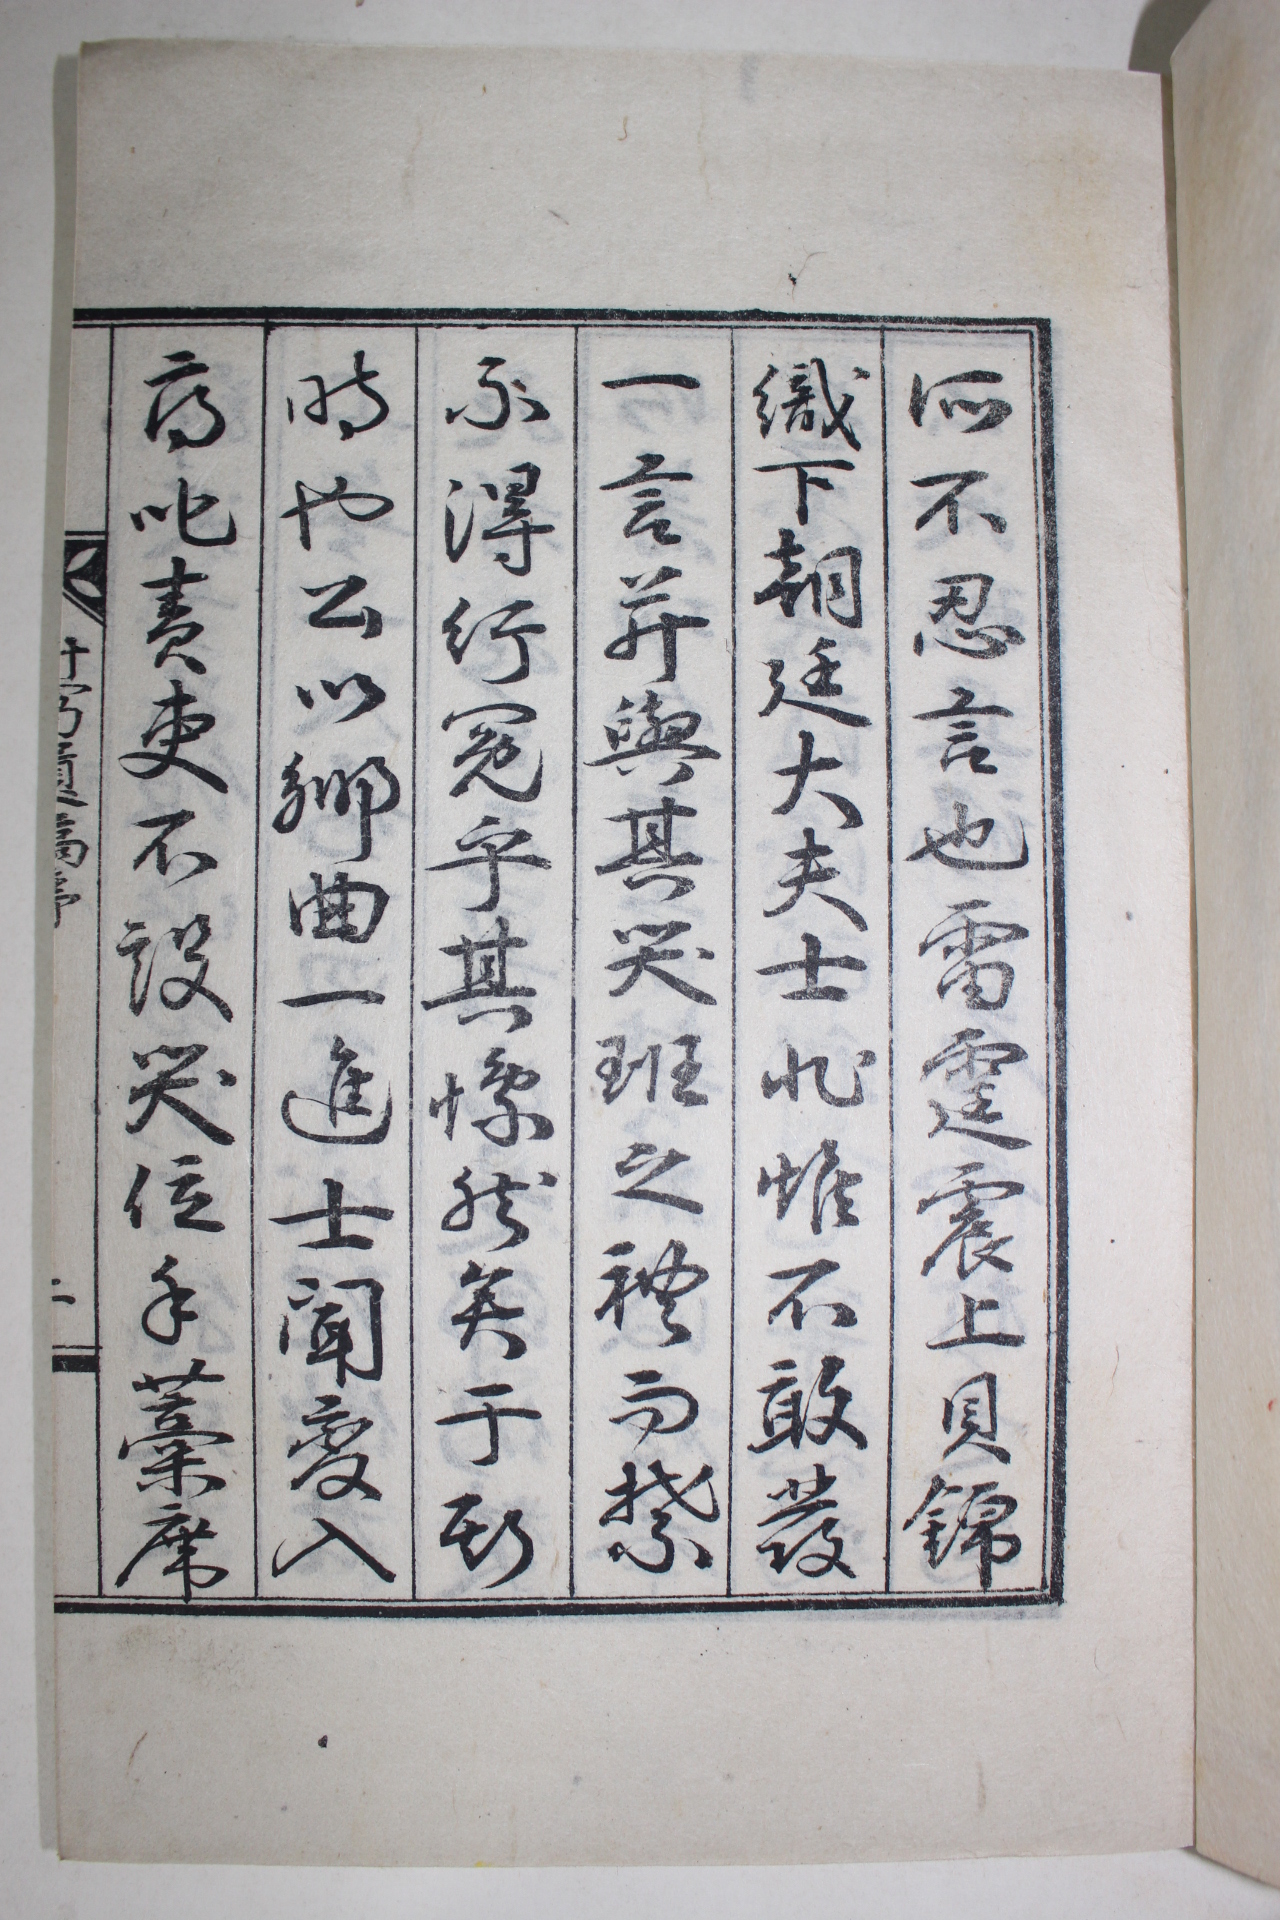 所不忍言也雷霆震上貝錦
織下朝廷大夫士非惟不敢發
一言並與其哭班之禮而禁
不得行冤乎其慘然矣于斯
時也公以鄉曲一進士聞變入
府叱責吏不設哭位手藁席